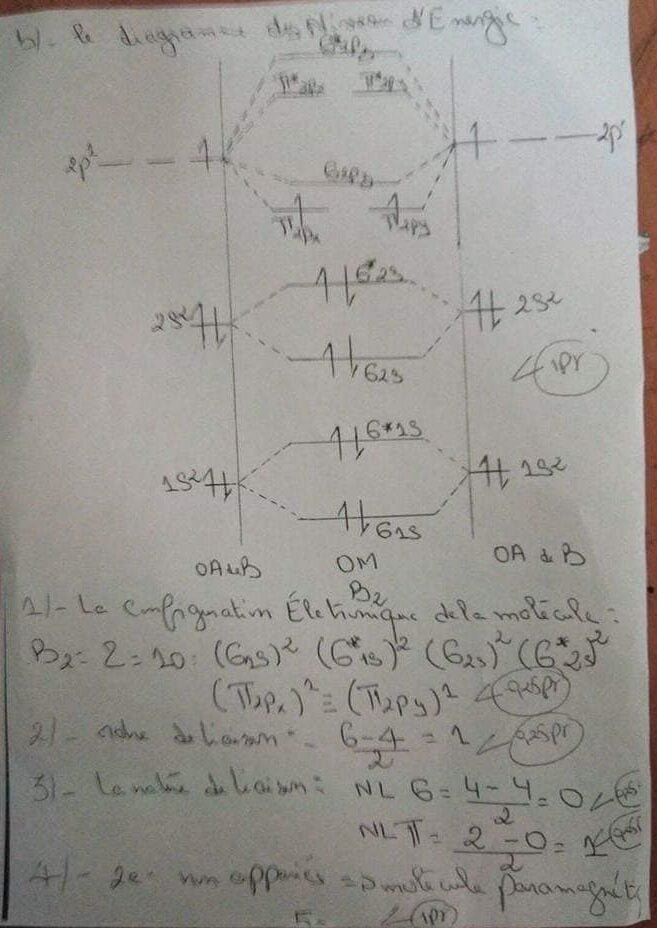 b/- le diagramme des Niveau d'Energie :
σ*2pz
π*2px π*2py
2p¹ 2p¹
σ2pz
π2px π2py
σ*2s
2s² 2s²
σ2s
1pr
σ*1s
1s² 1s²
σ1s
OA de B OM OA de B
B₂
1/- La Configuration Életronique de la molécule :
B₂ = Z = 10 : (σ1s)² (σ*1s)² (σ2s)² (σ*2s)²
(π2px)¹ ≡ (π2py)¹ 0,25pr
2/- ordre de liaison :- 6-4/2 = 1 0,25pr
3/- La nature de liaison : NL σ = 4-4/2 = 0 0,25
NL π = 2-0/2 = 1 0,25pr
4/- 2e- non appariés => molécule paramagnéti
1pr